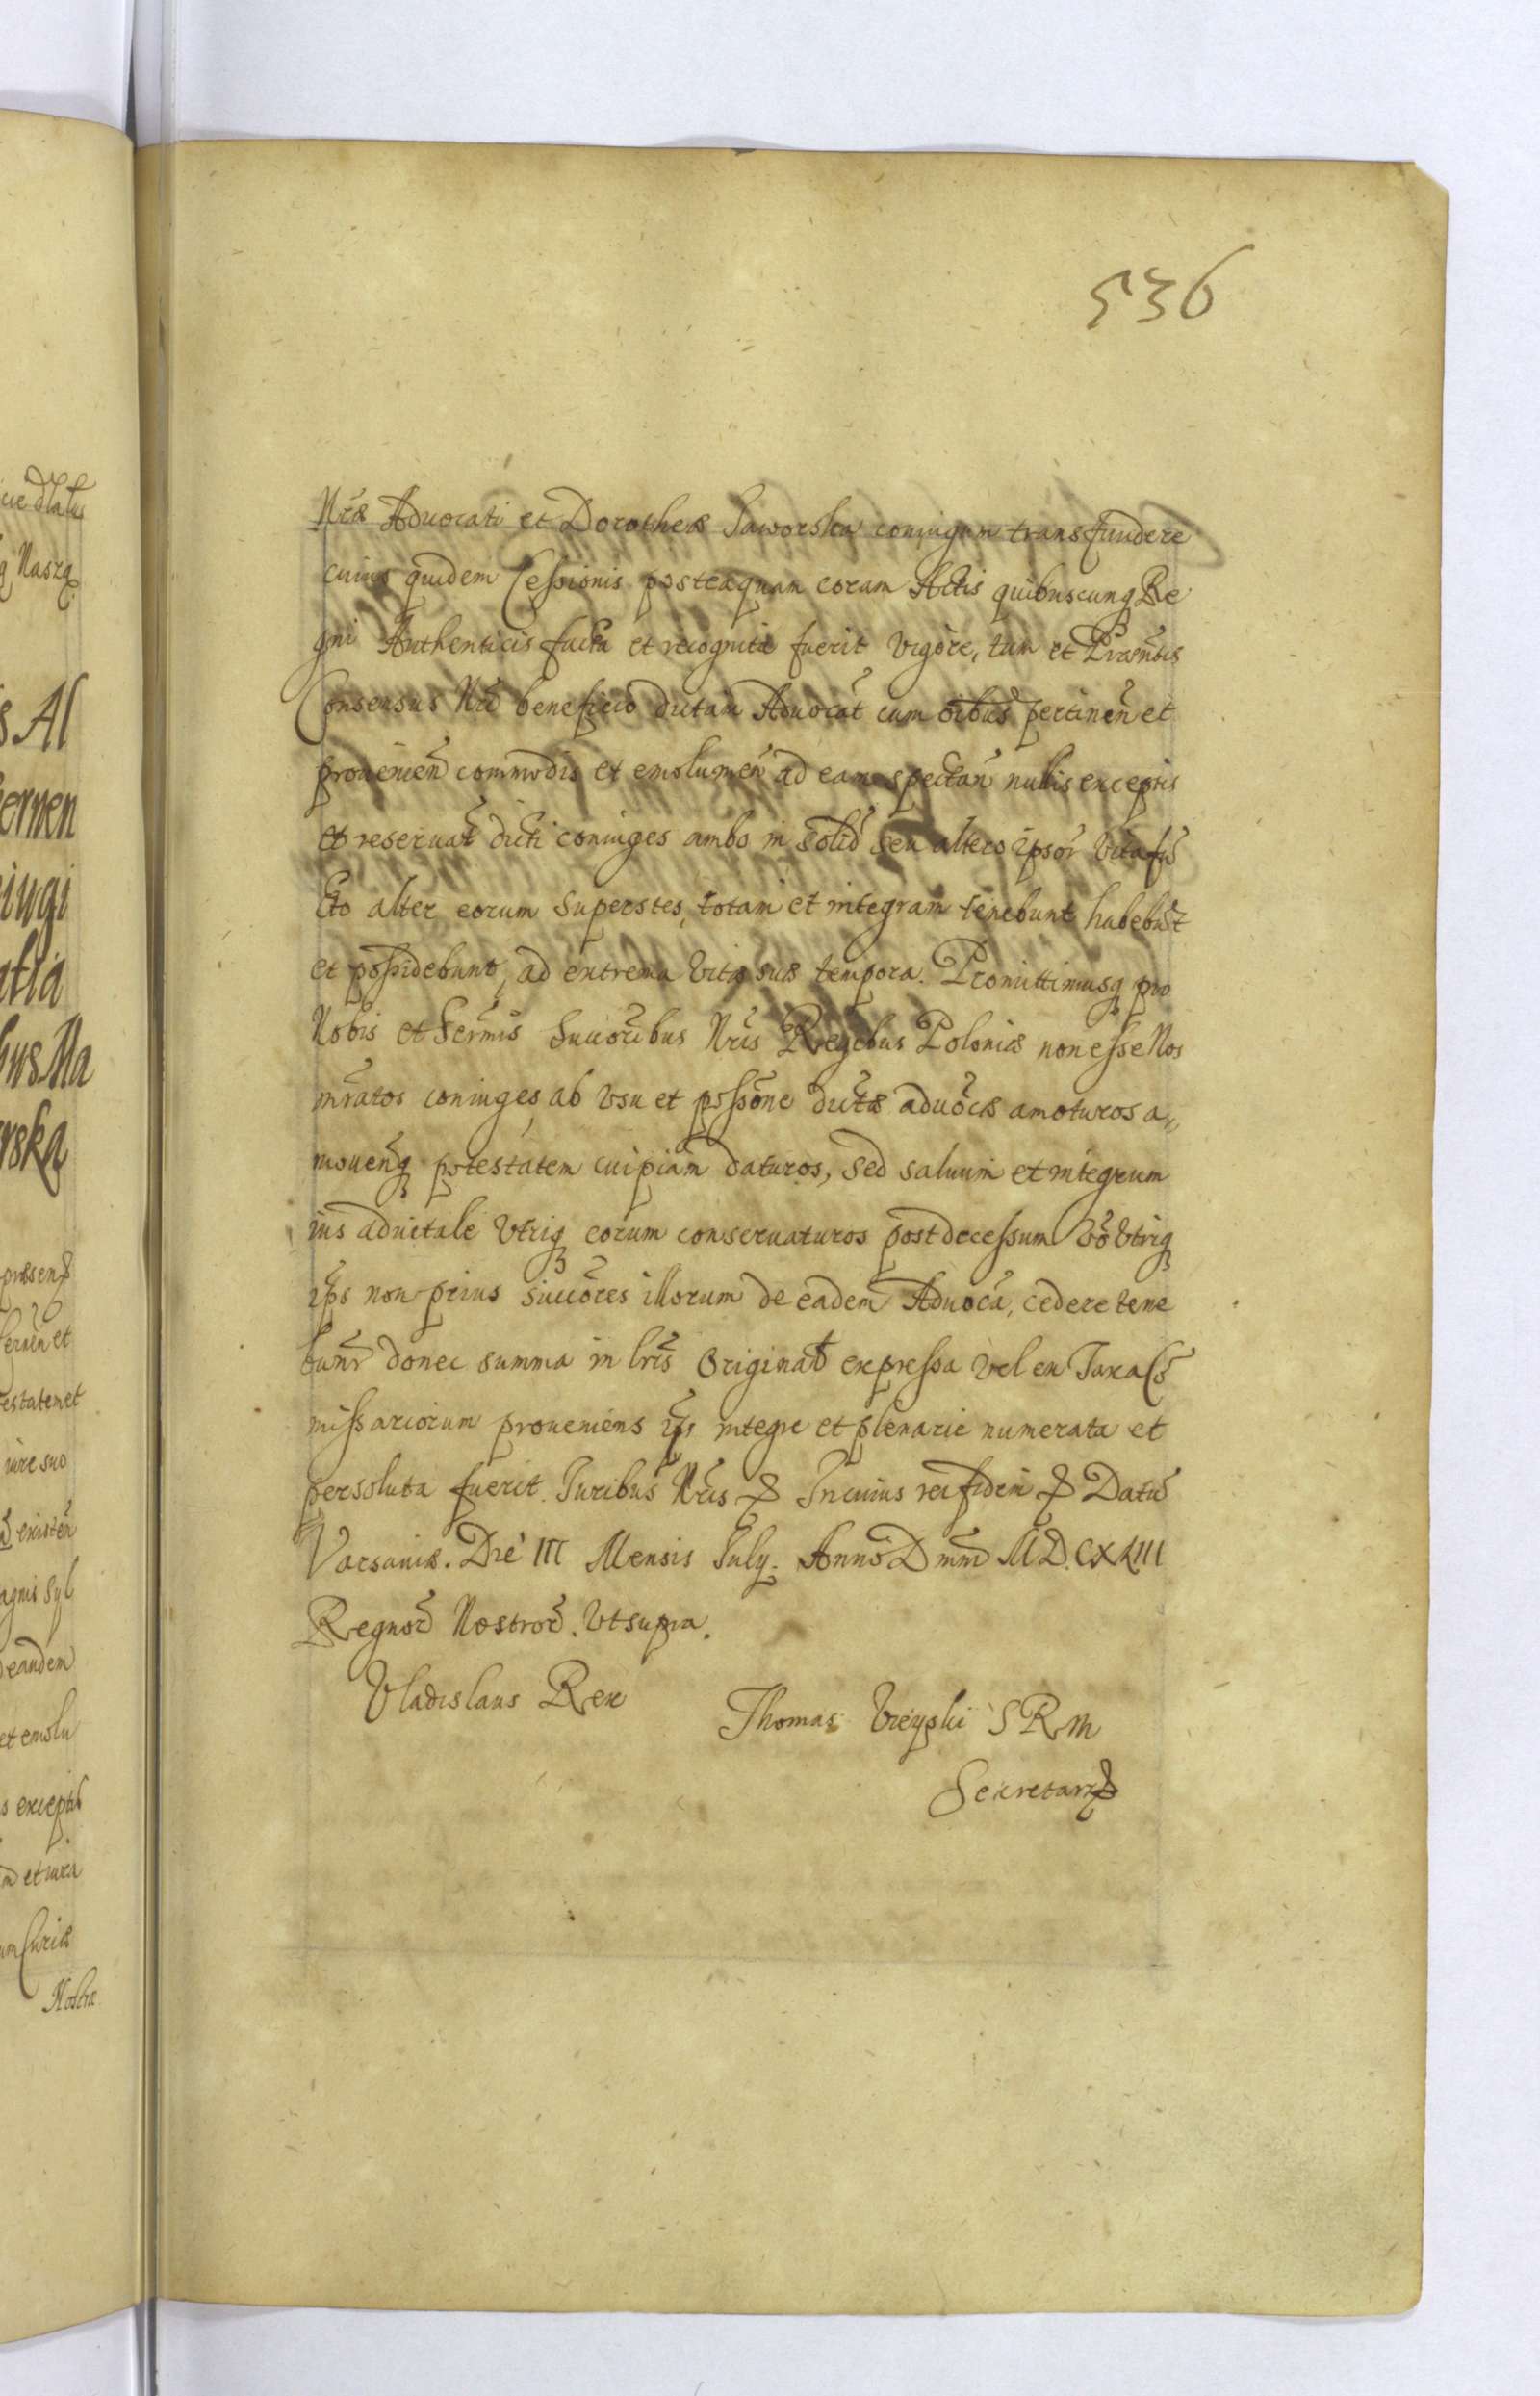 536
Nr̃æ Advocati et Dorotheæ Jaworska coniugum transfundere
cuius quidem Cessionis posteaquam coram Actis quibuscunq Re
gni Authenticis facta et recognita fuerit vigore, tum et Præsñtis
Consensus Nr̃i beneficio dictam Aduocat̃ cum oĩbus pertineñ et
prouenieñ commodis et emolumeñ ad eam spectañ nullis exceptis
et reseruat̃ dicti coniuges ambo in solid̃ seu altero ipsor̃ vita fũ
cto alter eorum superstes, totam et integram tenebunt habebũt
et possidebunt, ad extrema vitæ suæ tempora. Promittimusq pro
Nobis et Serm̃is Succr̃ibus Nr̃is Regibus Poloniæ non esse Nos
mr̃atos coniuges ab vsu et possõne dictæ aduõcæ amoturos a„
mouenq̃ potestatem cuipiam daturos, sed saluum et integrum
ius aduitale vtriq eorum conseruaturos post decessum võ vtriq
ip̃s non prius succõres illorum de eadem Aduocã, cedere tene
bunr̃ donec summa in lr̃is Originał expressa vel ex Taxa Cõ
missariorum proueniens ip̃s integre et plenarie numerata et
persoluta fuerit. Iuribus Nr̃is & In cuius rei fidem & Datũ
Varsauiæ. Die III Mensis July. Anno Dnnĩ MDCXLIII
Regnor̃ Nostror̃. Vt supra.
Vladislaus Rex
Thomas SRM
Secretarz
cie
Naszą
s Al
ernen
iugi
atia
Ma
rska
præsen
et
testatem et
iure suo
existeñ
agnis Syl
eandem
et emolu
s exceptis
et iura
um Curiæ
Nostræ